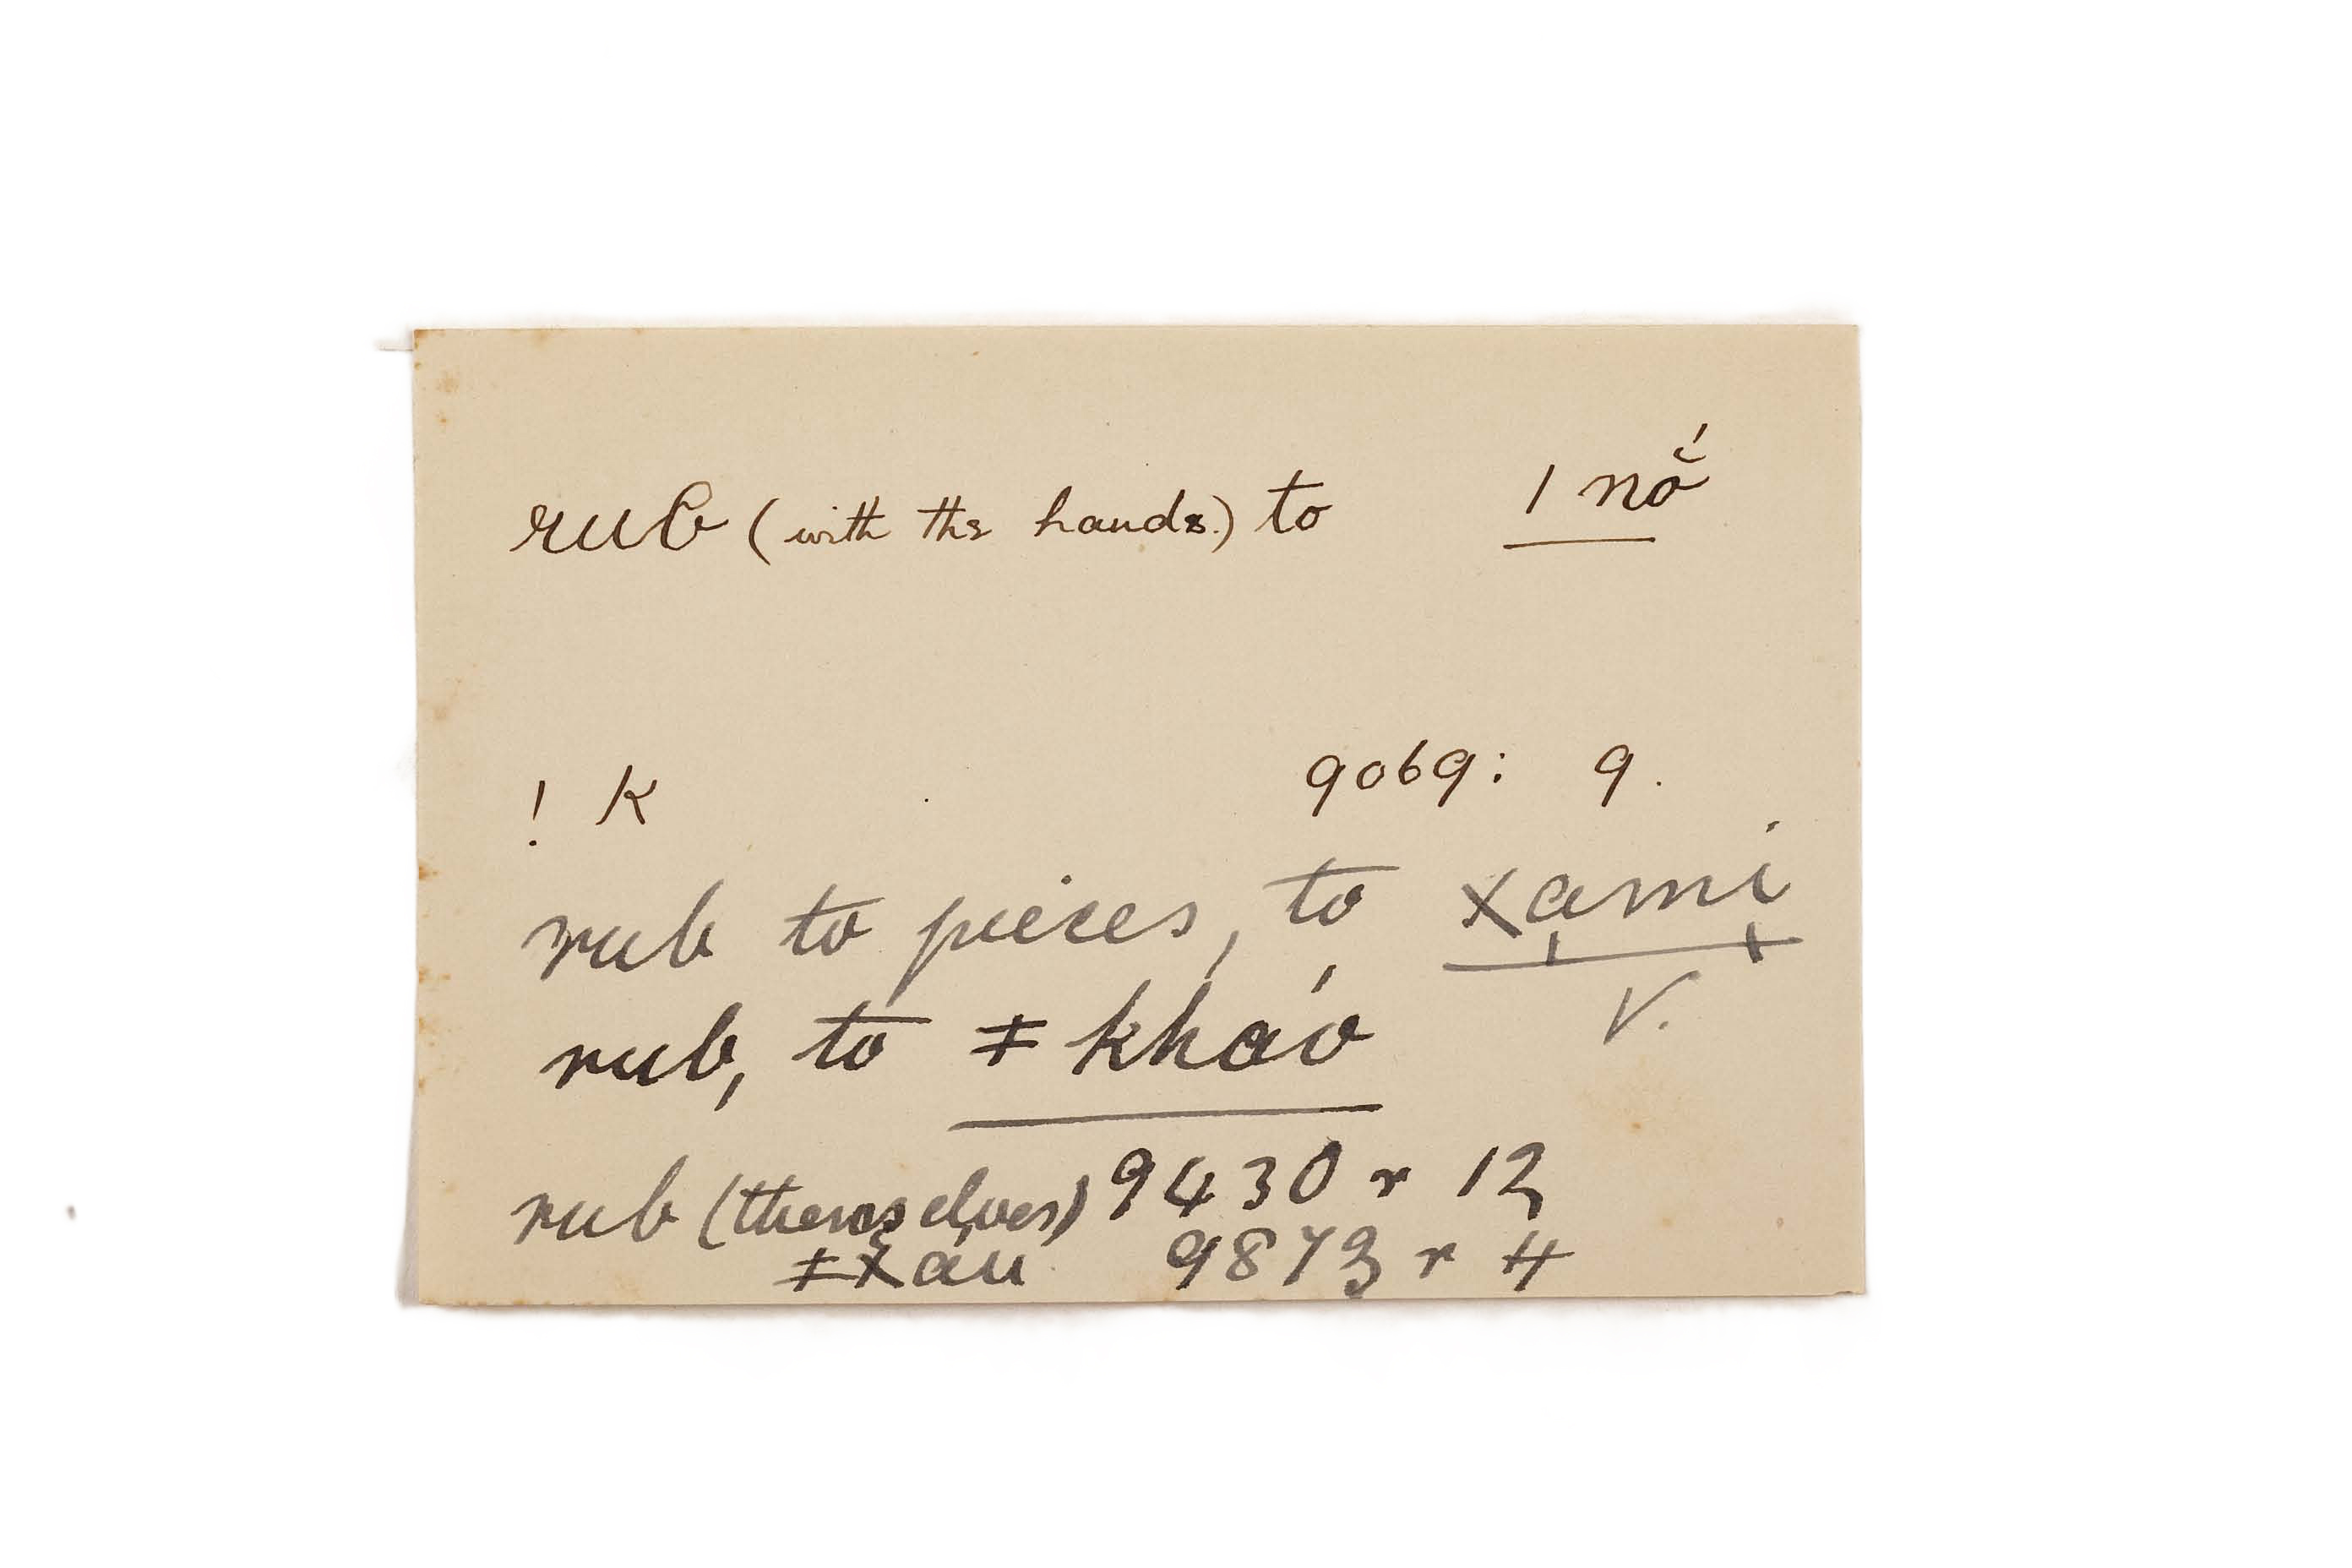 rub (with the hands.) to ǀ nŏ́
! K 9069: 9.
rub to pieces, to x̱ami̱
V.
rub, to ǂ kháó
rub (themselves) 9430 r 12
ǂx̆áu 9873 r 4